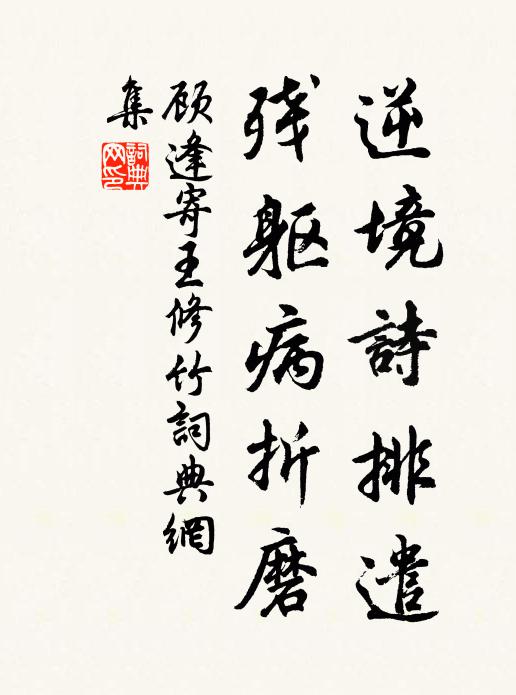 逆境詩排遣
残躯病折磨
顾逢寄王修竹詞典網
集
詞典網印